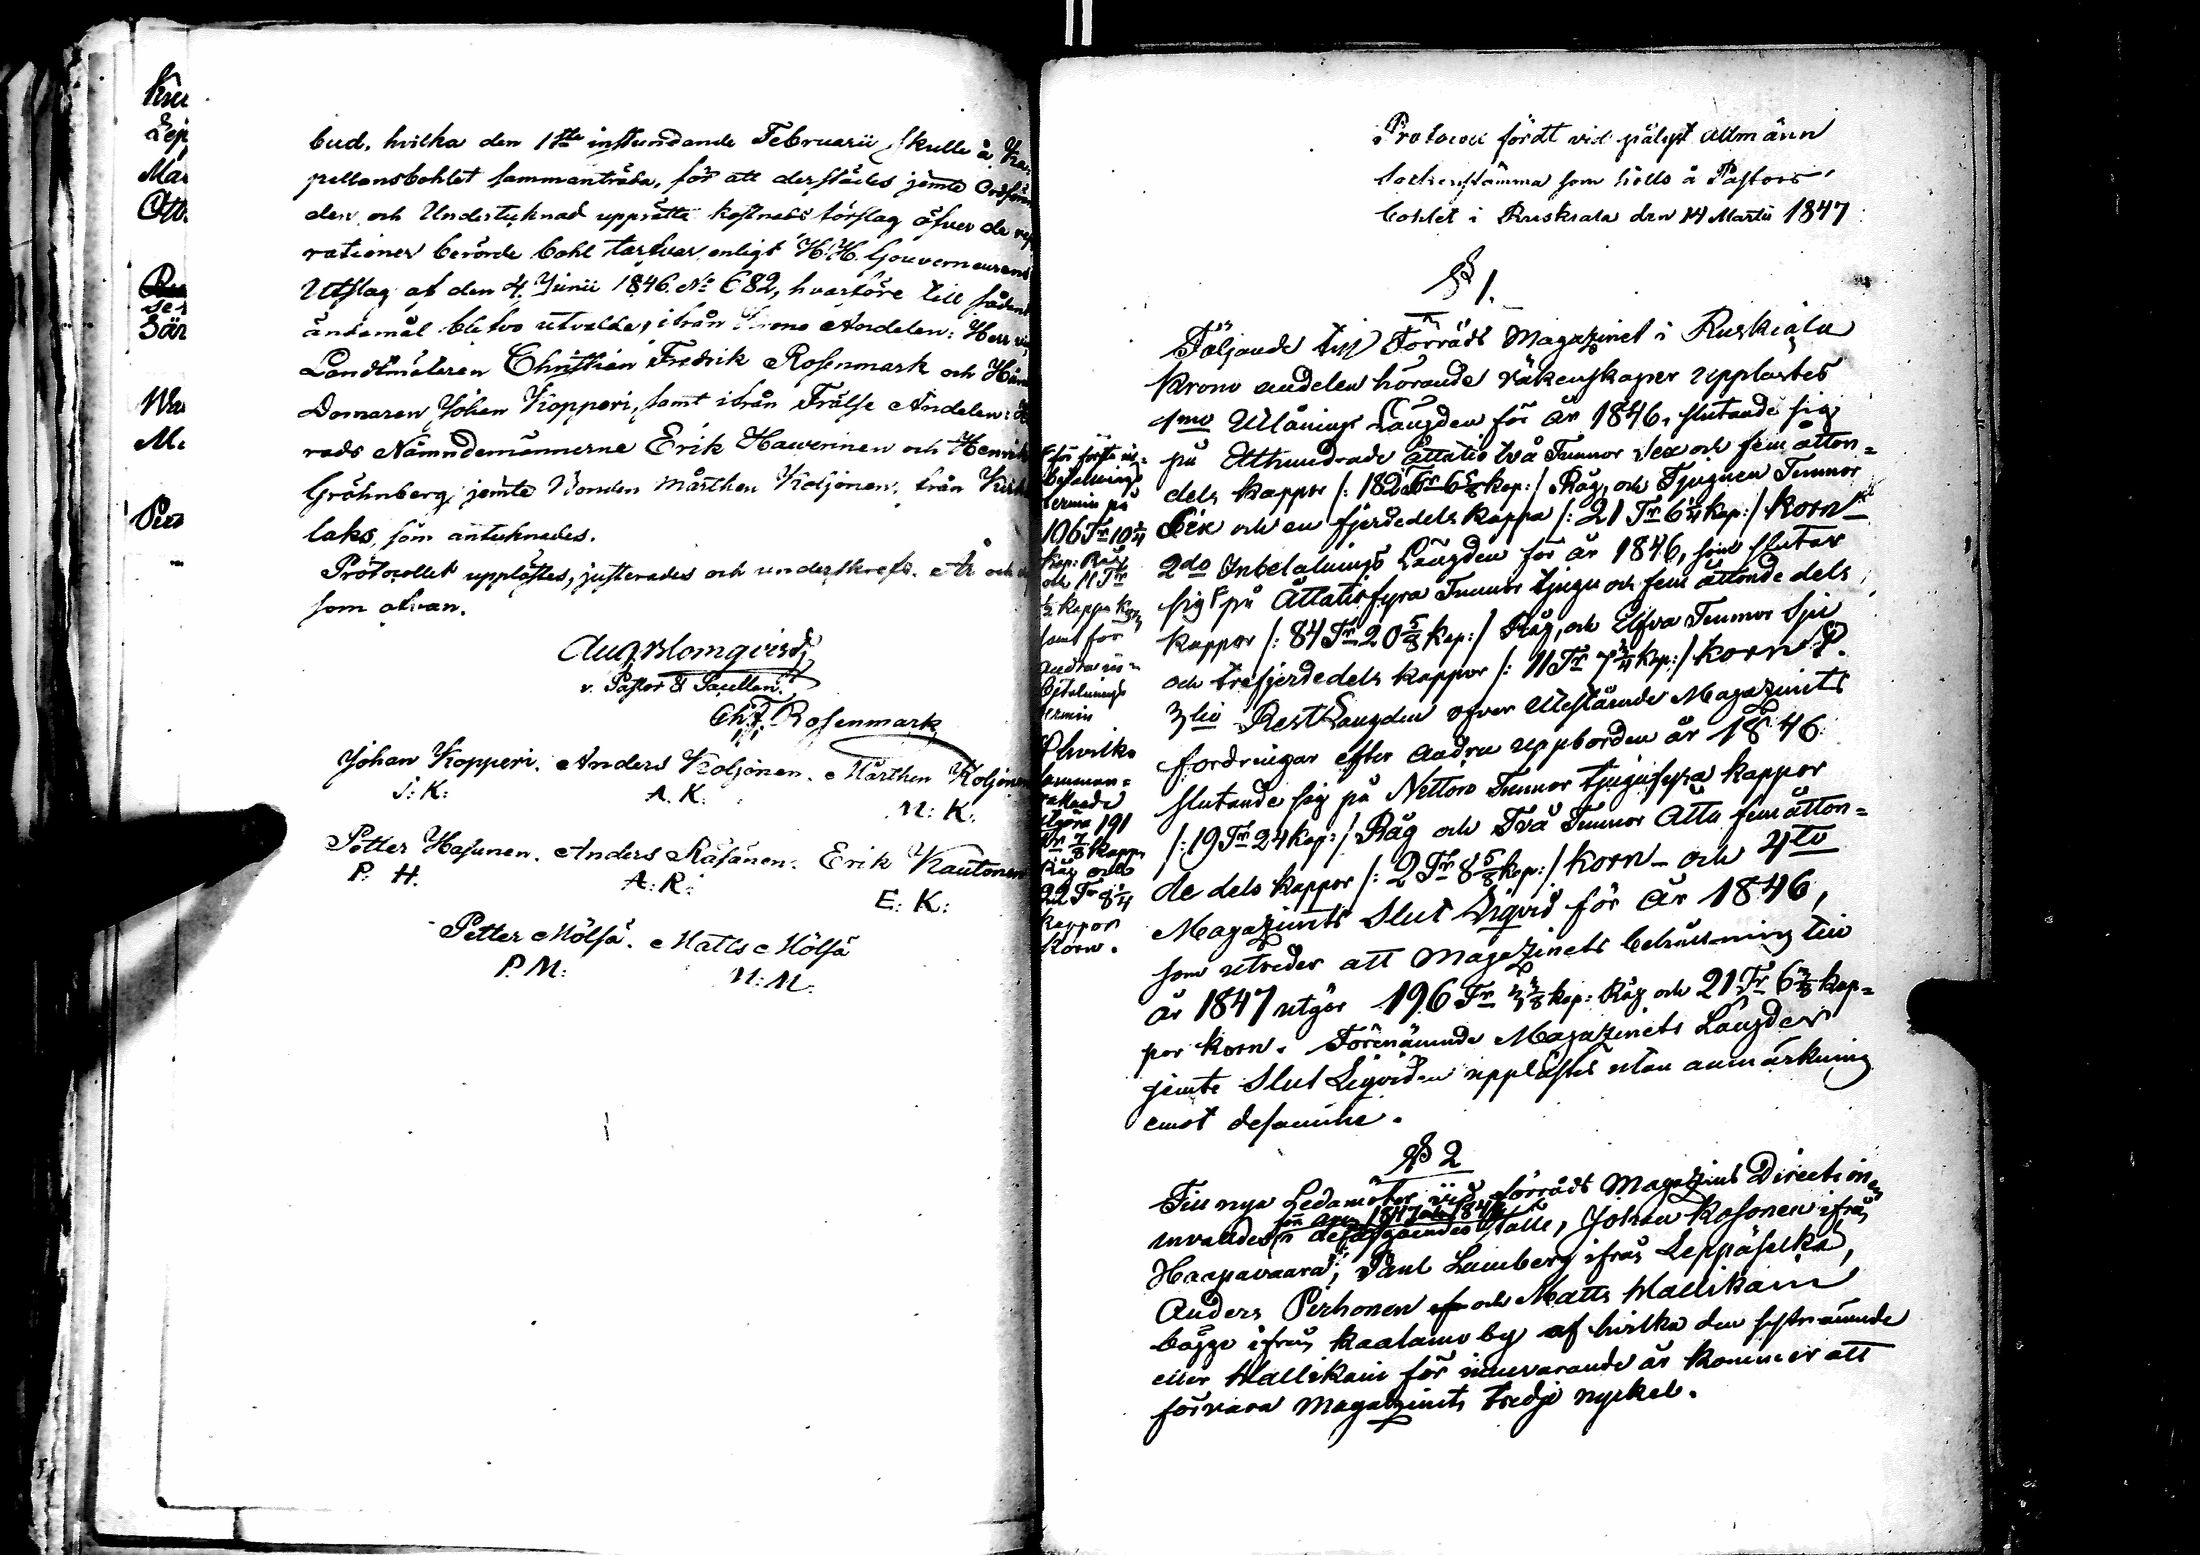 bud, hvilka den 1sta instundande Februarii skulle å Ka
pellansbohlet sammanträda, för att derstädes jemte Ordföran
den och Undertecknad upprätta kostnads förslag öfver de rep
rationer berörde bohl tarfvar enligt H. H. Gouverneurens
Utslag af den 4 Junii 1846 No 682, hvarföre till sådant
ändamål blefvo utvalde, ifrån Krono Andelen: Herr v.
Landtmäteren Christian Fredrik Rosenmark och Hä
Domaren Johan Kopperi, samt ifrån Frälse Andelen: Hä
rads Nämndemännerne Erik Hawerinen och Henrik
Gröhnberg, jemte Bonden Mårthen Koljonen, från Kirk
laks, som antecknades.
Protocollet upplästes, justerades och underskrefs. År och
som ofvan.
Aug. Blomqvist
v. Pastor & Sacellan.
Ch. F. Rosenmark
Johan Kopperi. Anders Koljonen. Mårthen Koljonen
J: K: A. K: M: K:
Petter Hasunen. Anders Räsänen. Erik Kautonen
P: H. A: R: E: K:
Petter Mölsä. Matts Mölsä
P. M: M: M:
Protocoll fördt vid pålyst allmänn
Sockenstämma som hölls å Pastors
bohlet i Ruskiala den 14 Martii 1847
§ 1.
Följande till Förråds Magazinet i Ruskiala
Krono andelen hörande räkenskaper upplästes
1mo Utlånings Längden för år 1846, slutande sig
på Etthundrade åttatio två Tunnor sex och fem åtton=
dels kappor /: 182 Tr 6 5/8 kap: / Råg, och Tjuguen Tunnor
Sex och en fjerdedels kappa /: 21 Tr 6 1/4 kap: / korn
2do Inbetalnings Längden för år 1846, som slutar
sig på Åttatiofyra Tunnor tjugu och fem åttonde dels
kappor /: 84 Tr 20 5/8 kap: / Råg, och Elfva Tunnor Sju
och trefjerdedels kappor /: 11 Tr 7 3/4 kap: / korn
3tio Rest Längden öfver utestående Magazinets
fordringar efter andra uppbörden år 1846
slutande sig på Nitton Tunnor tjugufyra kappor
/: 19 Tr 24 kap: / Råg och Två Tunnor Åtta fem åtton=
de dels kappor /: 2 Tr 8 5/8 kap: / korn och 4to
Magazinets Slut Liqvid för år 1846,
som utreder att Magazinets behållning till
år 1847 utgör 196 Tr kap: Råg och 21 Tr kap=
por korn. Förenämnde Magazinets Längder
jemte Slut Liqviden upplästes utan anmärkning
emot desamme.
för första in=
betalnings
termin på
106 Tr 10 1/4
kap: Råg
och 11 Tr
1/2 kappa korn
samt för
andra in=
betalnings
termin
hvilka
samman=
räknade
utgöra 191
Tr 7/8 kapp.
Råg och
22 Tr 8 1/4
kappor
Korn.
§ 2
Till nya Ledamöter vid förråds Magazins Directionen
invaldes för åren 1847 och 1848 i de afgåendes ställe, Johan Kosonen ifrån
Haapavaara, Paul Lumberg ifrån Leppäselkä,
Anders Pirhonen och Matts Hallikain
bägge ifrån Kaalamo by af hvilka den sistnämnde
eller Hallikain för innevarande år kommer att
förvara Magazinets tredje nyckel.